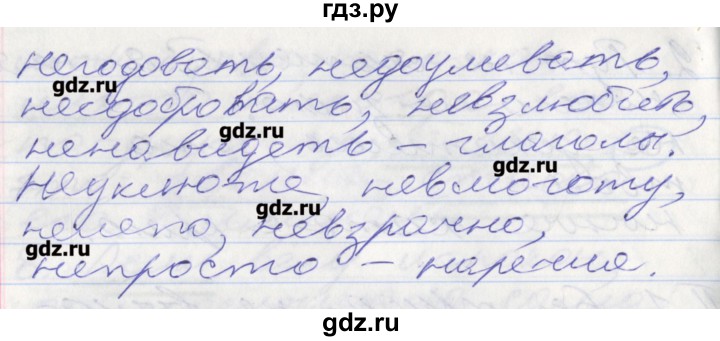 гдз.ру
негодовать, недоумевать,
gdz.ru
несдобровать, невзлюбить,
gdz.ru
ненавидеть – глаголы.
gdz.ru
Неуклюже, невмоготу,
gdz.ru
нелепо, невзрачно,
gdz.ru
непросто – наречие.
gdz.ru